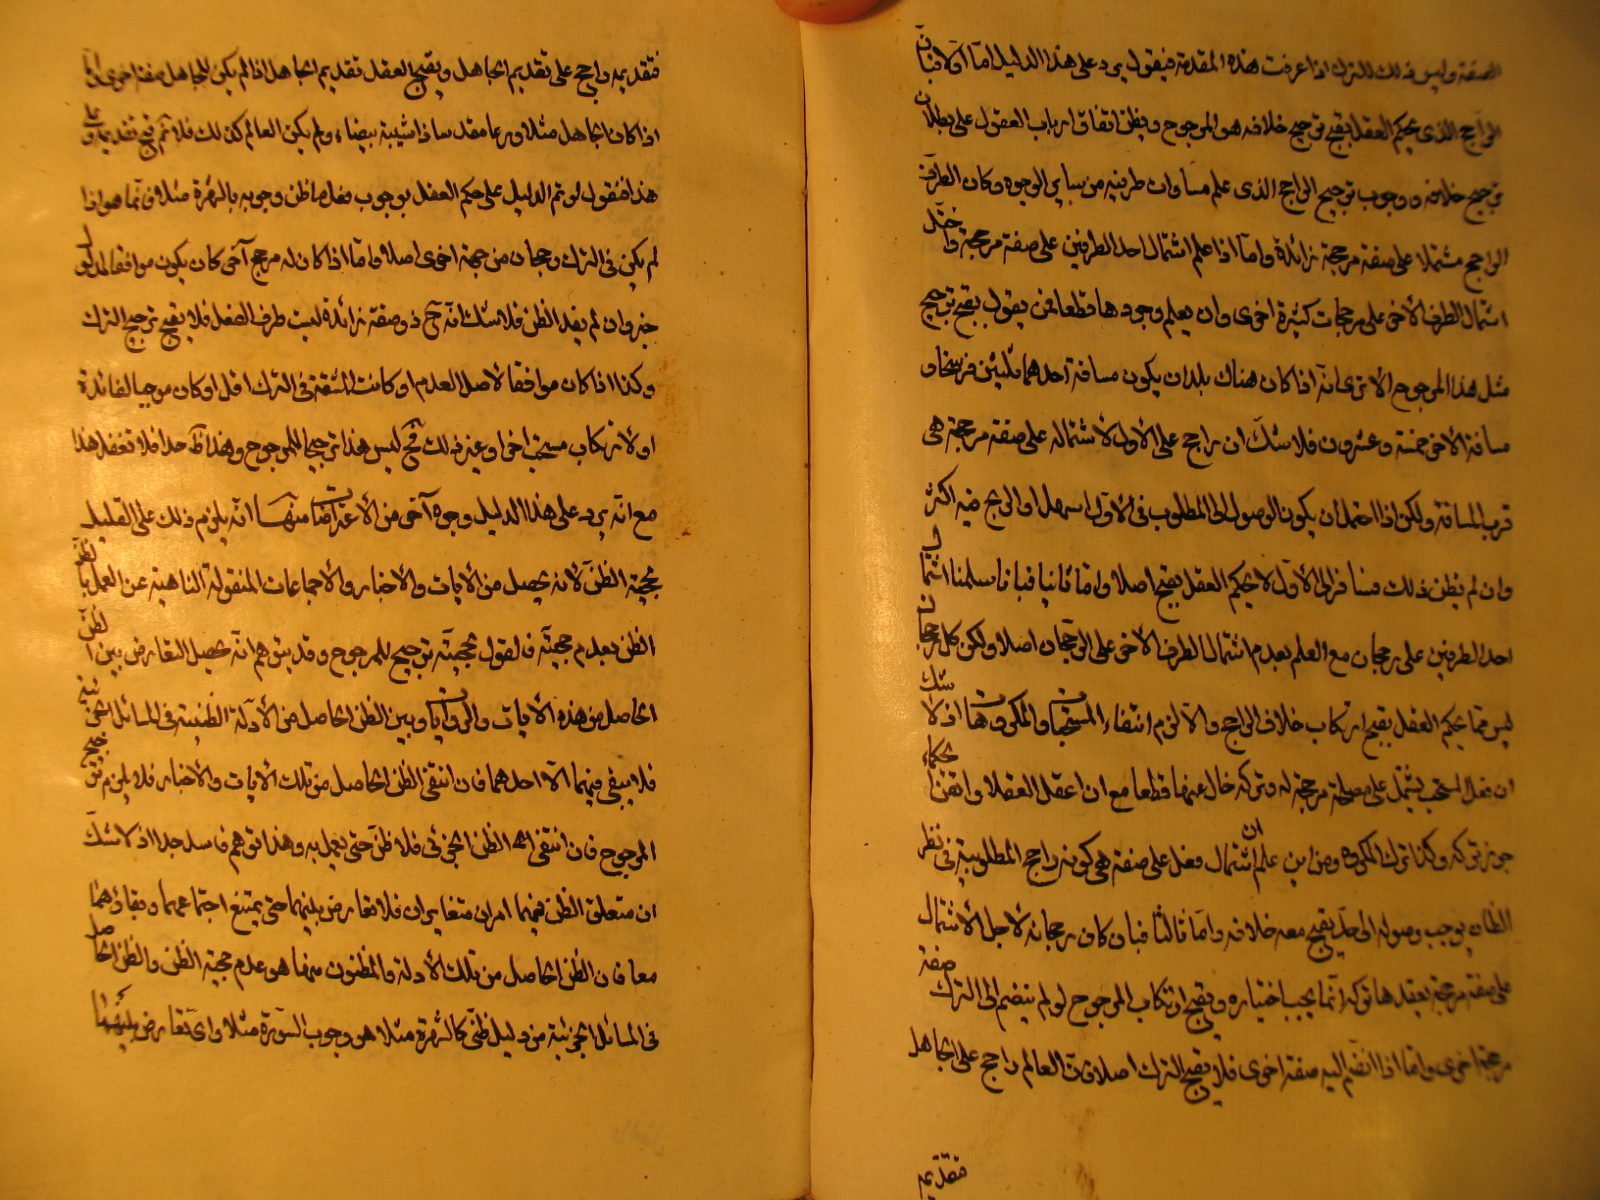 الصفة وليس ذلك للترك اذا عرفت هذه المقدمة فيقول يرد على هذا الدليل اما اولا فبان
الراجح الذى يحكم العقل بقبح ترجيح خلافه هو المرجوح ويظن اتفاق ارباب العقول على بطلان
ترجيح خلافه ووجوب ترجيح الراجح الذى علم مساوات طرفيه من ساير الوجوه وكان الطرف
الراجح مشتملا على صفة مرجحة زائدة واما اذا علم اشتمال احد الطرفين على صفة مرجحة واحتمل
اشتمال الطرف الأخر على مرجحات كثيرة اخرى وان يعلم وجودها قطعا فمن يقول بقبح ترجيح
مثل هذا المرجوح الا ترى انه اذا كان هناك بلدان يكون مسافة احدهما ثلثين فرسخا و
مسافة الأخر خمسة وعشرون فلا شك ان راجح على الأول لاشتماله على صفة مرجحة هى
قرب المسافة ولكن اذا احتمل ان يكون الوصول الى المطلوب فى الأول اسهل او الربح فيه اكثر
وان لم يظن ذلك فسافر الى الأول لا يحكم العقل بقبح اصلا واما ثانيا فبانا سلمنا اشتمال
احد الطرفين على رجحان مع العلم بعدم اشتمال الطرف الأخر على الرجحان اصلا ولكن كل رجحان
ليس مما يحكم العقل بقبح ارتكاب خلاف الراجح والا لزم انتفاء المستحبات والمكروهات اذ لا شك
ان فعل المستحب يشتمل على مصلحة مرجحة له وتركه خال عنها قطعا مع ان اعقل العقلاء واتقن الحكماء
جوز تركه وكذا ترك المكروه ومن اين علم ان اشتمال فعل على صفة هى كونه راجح المطلوبية فى نظر
الظان يوجب وصوله الى حد يقبح معه خلافه واما ثالثا فبان كان رجحانه لاجل الاشتمال
على صفة مرجحة يعقدها تركه انما يجب اختياره ويقبح ارتكاب المرجوح لو لم ينضم الى الترك صفة
مرجحة اخرى واما اذا انضم اليه صفة اخرى فلا يقبح الترك اصلا فان العالم راجح على الجاهل
فتقديم
فتقديمه راجح على تقديم الجاهل ويقبح العقل تقديم الجاهل اذا لم يكن للجاهل صفة اخرى اما
اذا كان الجاهل مثلا ورعا مقدسا ذا شيبة بيضاء ولم يكن العالم كذلك فلا ثم قبح تقديمه وعلى
هذا فنقول لو تم الدليل على حكم العقل بوجوب فعل ما ظن وجوبه بالشهرة مثلا فانما هو اذا
لم يكن فى الترك رجحان من جهة اخرى اصلا واما اذا كان له مرجح آخر كان يكون موافقا لمدلول
خبر وان لم يفد الظن فلا شك انه ح ذو صفة زائدة ليست طرف الفعل فلا يقبح ترجيح الترك
وكذا اذا كان موافقا لاصل العدم او كانت المشقة فى الترك اقل او كان موجبا لفائدة
او لارتكاب مستحب اخر او غير ذلك فح ليس هذا ترجيحا للمرجوح وهذا ظ جدا فلا تغفل هذا
مع انه يرد على هذا الدليل وجوه آخر من الأعتراضات منها انه يلزم ذلك على القليل
بحجية الظن لانه يحصل من الأيات والأخبار والأجماعات المنقولة الناهية عن العمل بالظن
الظن بعدم حجيته فالقول بحجيته ترجيح للمرجوح وقد يتوهم انه يحصل التعارض بين الظن
الحاصل من هذه الأيات والروايات وبين الظن الحاصل من الأدلة الظنية فى المسائل الجزئية
فلا يبقى فيهما الا احدهما فان انتفى الظن الحاصل من تلك الأيات والأخبار فلا يلزم ترجيح
المرجوح فان انتفى الظن الجزئى فلا ظن حتى يعمل به وهذا توهم فاسد جدا اذ لا شك
ان متعلق الظن فيهما امران متغايران فلا تعارض بينهما حتى يمتنع اجتماعهما وبقاؤهما
معا فان الظن الحاصل من تلك الأدلة والمظنون منها هو عدم حجية الظن والظن الحاصل
فى المسائل الجزئية من دليل ظنى كالشهرة مثلا هو وجوب السورة مثلا واى تعارض بينهما